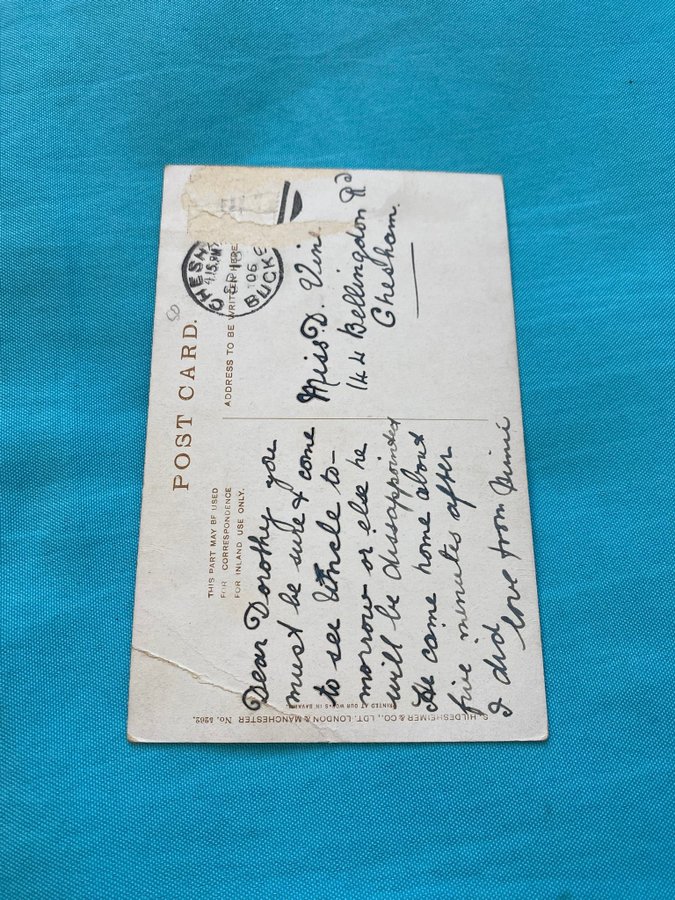 POST CARD.
THIS PART MAY BE USED
FOR CORRESPONDENCE
FOR INLAND USE ONLY.
ADDRESS TO BE WRITTEN HERE
CHESH
4.15 PM
SP 16
06
BUCKS
50
Dear Dorothy you
must be sure & come
to see Uncle to-
morrow or else he
will be dissappointed
He came home about
five minutes after
I did
love from
Miss. D. Vine
144 Bellingdon Rd
Chesham.
S. HILDESHEIMER & CO., LDT. LONDON & MANCHESTER No. 5262.
PRINTED AT OUR WORKS IN BAVARIA